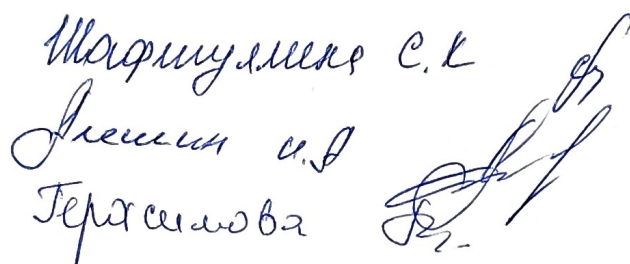 Шафигуллина С.К
Алешин И.Я
Герасимова